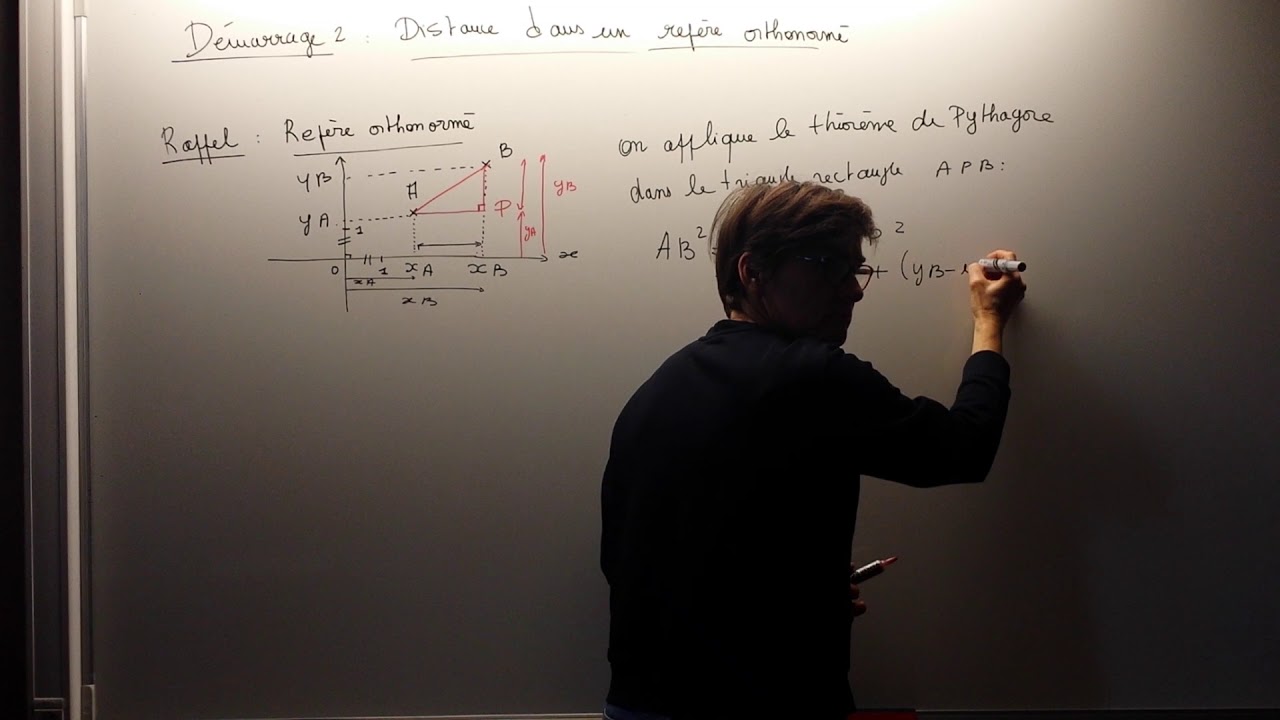 Démarrage 2 : Distance dans un repère orthonormé
Rappel : Repère orthonormé
B
yB
A
yB
yA
P
yA
1
0
1
xA
xB
x
xA
xB
On applique le théorème de Pythagore
dans le triangle rectangle APB :
AB²
²
+ (yB -